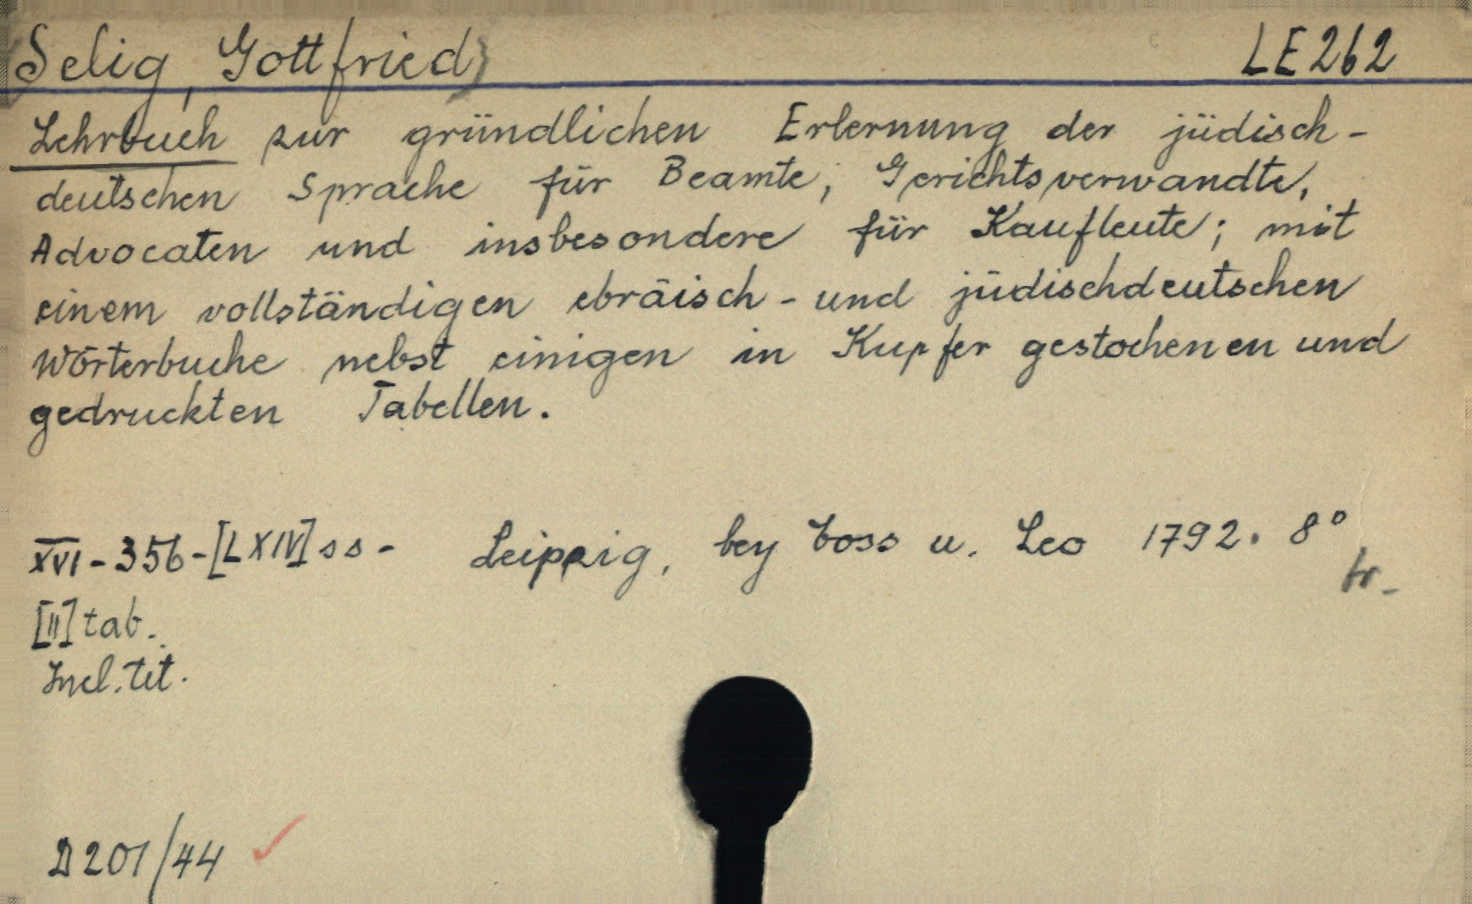 Selig, Gottfried LE 262
Lehrbuch zur gründlichen Erlernung der jüdisch-
deutschen Sprache für Beamte, Gerichtsverwandte,
Advocaten und insbesondere für Kaufleute; mit
einem vollständigen ebräisch- und jüdischdeutschen
Wörterbuche nebst einigen in Kupfer gestochenen und
gedruckten Tabellen.
XVI-356-[LXIV]ss- Leipzig, bey Voss u. Leo 1792. 8°
[II] tab.
Incl. tit.
D 201/44